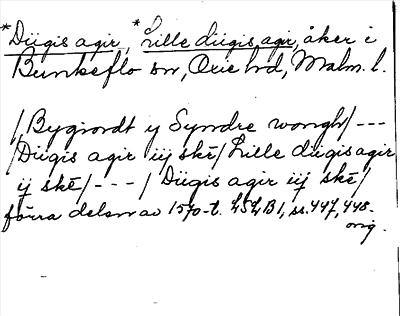 *Diigis agir, *Lille diigis agir, åker i
Bunkeflo sn, Oxie hd, Malm. l.
/Bygiordt y Syndre wongh/ ---
/Diigis agir iij skē/ Lille diigis agir
ij skē/ --- / Diigis agir iij skē/
förra delen av 1570-t. LSLB1, ss. 447, 448.
orig.